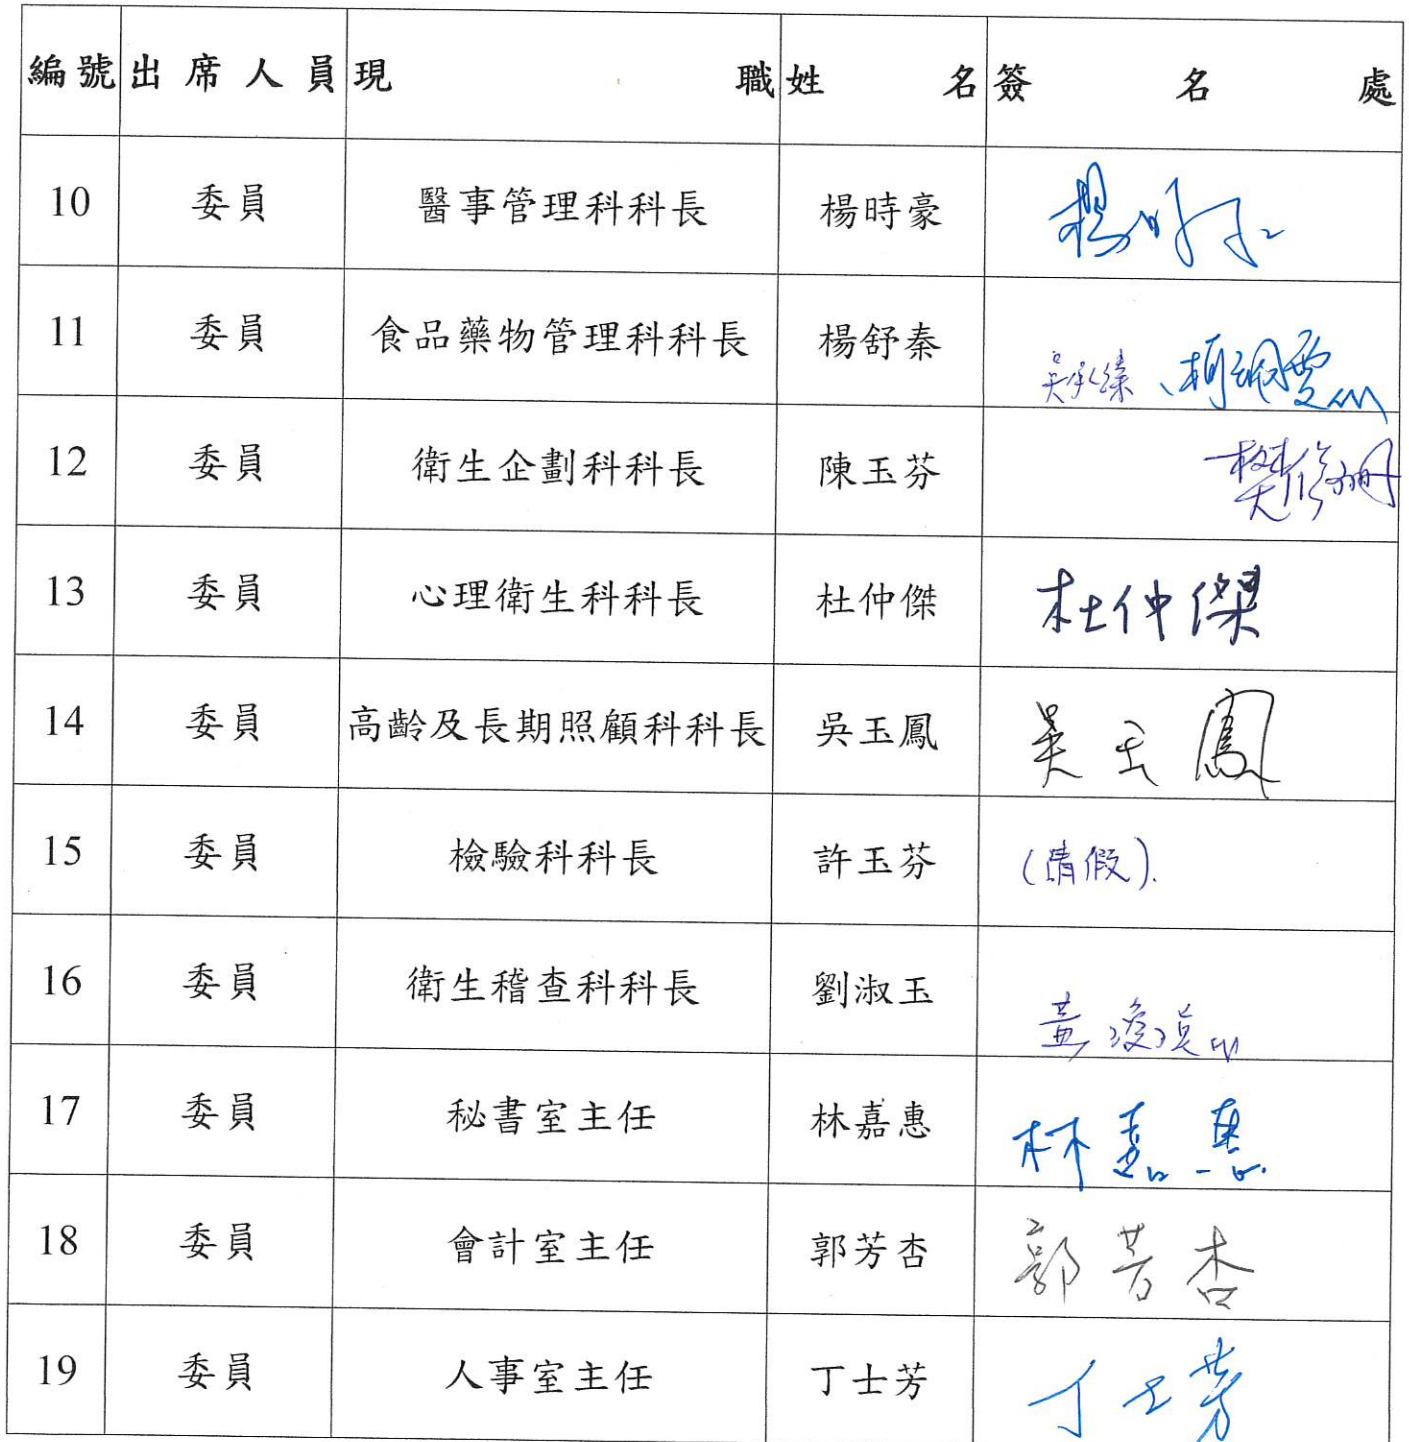 編號 出席人員 現職 姓名 簽名處
10 委員 醫事管理科科長 楊時豪 楊
11 委員 食品藥物管理科科長 楊舒秦 吳承臻、
12 委員 衛生企劃科科長 陳玉芬 樊修
13 委員 心理衛生科科長 杜仲傑 杜仲傑
14 委員 高齡及長期照顧科科長 吳玉鳳 吳玉鳳
15 委員 檢驗科科長 許玉芬 (請假).
16 委員 衛生稽查科科長 劉淑玉 黃
17 委員 秘書室主任 林嘉惠 林嘉惠
18 委員 會計室主任 郭芳杏 郭芳杏
19 委員 人事室主任 丁士芳 丁士芳